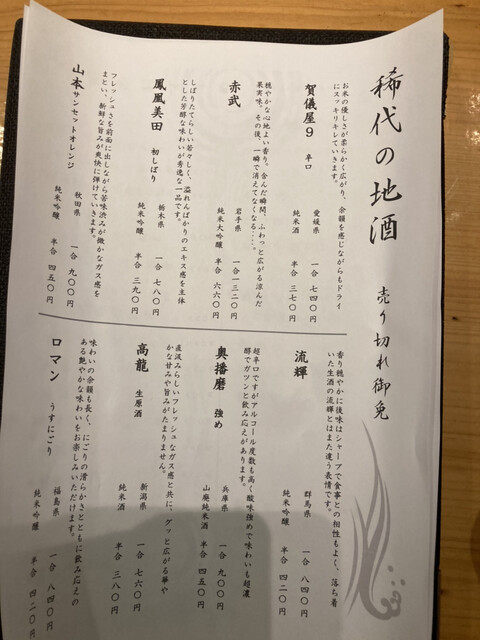 稀代の地酒
売り切れ御免
賀儀屋9 辛口
お米の優しさが柔らかく広がり、余韻を感じながらもドライ
にスッキリキレていきます。
愛媛県 一合 七四〇円
純米酒 半合 三七〇円
赤武
穏やかな心地よい香り。含んだ瞬間、ふわっと広がる澄んだ
果実味。その後、一瞬で消えてなくなる・・・。
岩手県 一合一三二〇円
純米大吟醸 半合 六六〇円
鳳凰美田 初しぼり
しぼりたてらしい若々しく、溢れんばかりのエキス感を主体
とした芳醇な味わいが秀逸な一品です。
栃木県 一合 七八〇円
純米吟醸 半合 三九〇円
山本サンセットオレンジ
フレッシュさを前面に出しながら苦味渋みが微かなガス感を
まとい、新鮮な旨みが爽快に弾けていきます。
秋田県 一合 九〇〇円
純米吟醸 半合 四五〇円
流輝
香り穏やかに後味はシャープで食事との相性もよく、落ち着
いた生酒の流輝とはまた違う表情です。
群馬県 一合 八四〇円
純米吟醸 半合 四二〇円
奥播磨 強め
超辛口ですがアルコール度数も高く酸味強めで味わいも超濃
醇でガツンと飲み応えがあります。
兵庫県 一合 九〇〇円
山廃純米酒 半合 四五〇円
高龍 生原酒
直汲みらしいフレッシュなガス感と共に、グッと広がる華や
かな甘みや旨みがたまりません。
新潟県 一合 七六〇円
純米酒 半合 三八〇円
ロマン うすにごり
味わいの余韻も長く、にごりの滑らかさとともに飲み応えの
ある艶やかな味わいをお楽しみいただけます。
福島県 一合 八四〇円
純米吟醸 半合 四二〇円